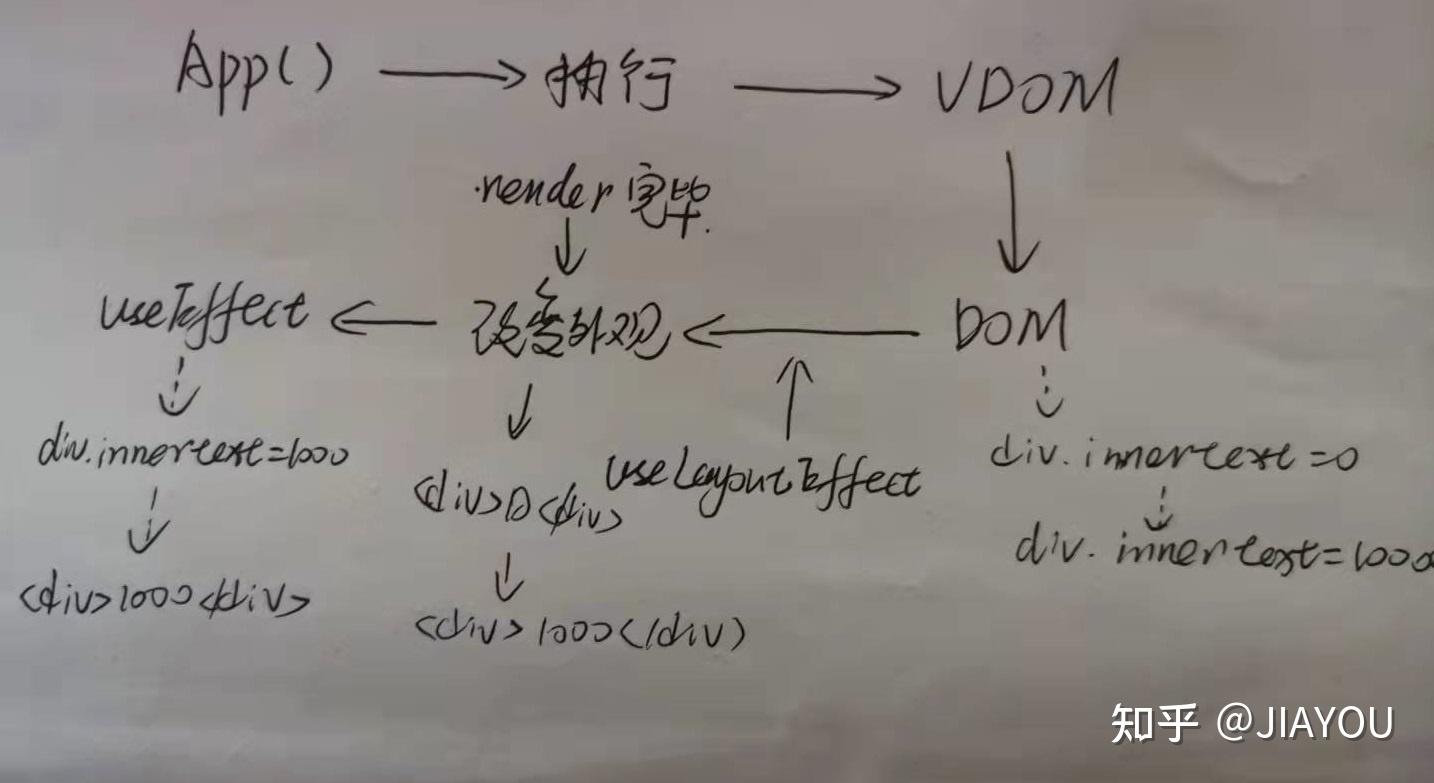 App() → 执行 → VDOM
render 完毕.
useEffect ← 改变外观 ← DOM
div.innertext=1000
<div>0</div>
useLayoutEffect
div.innertext=0
div.innertext=1000
<div>1000</div>
<div>1000</div>
知乎 @JIAYOU